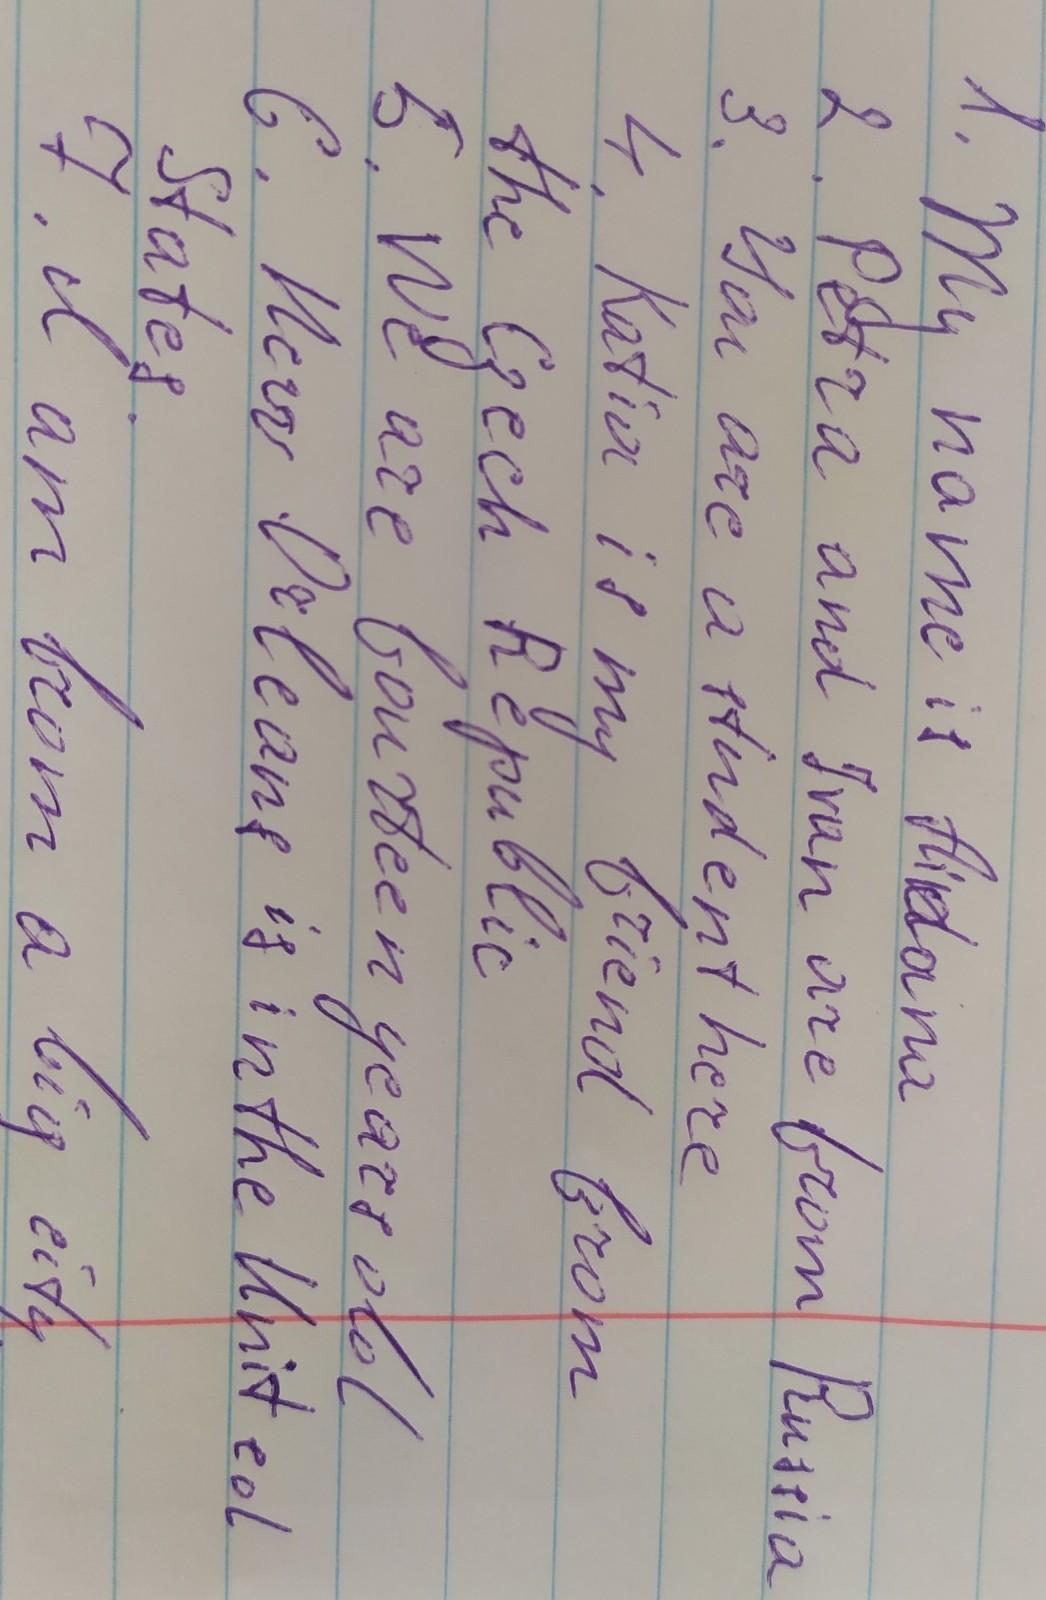 1. My name is
2. Petra and Ivan are from Russia
3. You are a student here
4. Katia is my friend from
the Czech Republic
5. We are fourteen years old
6. New Orleans is in the United
States.
7. I am from a big city